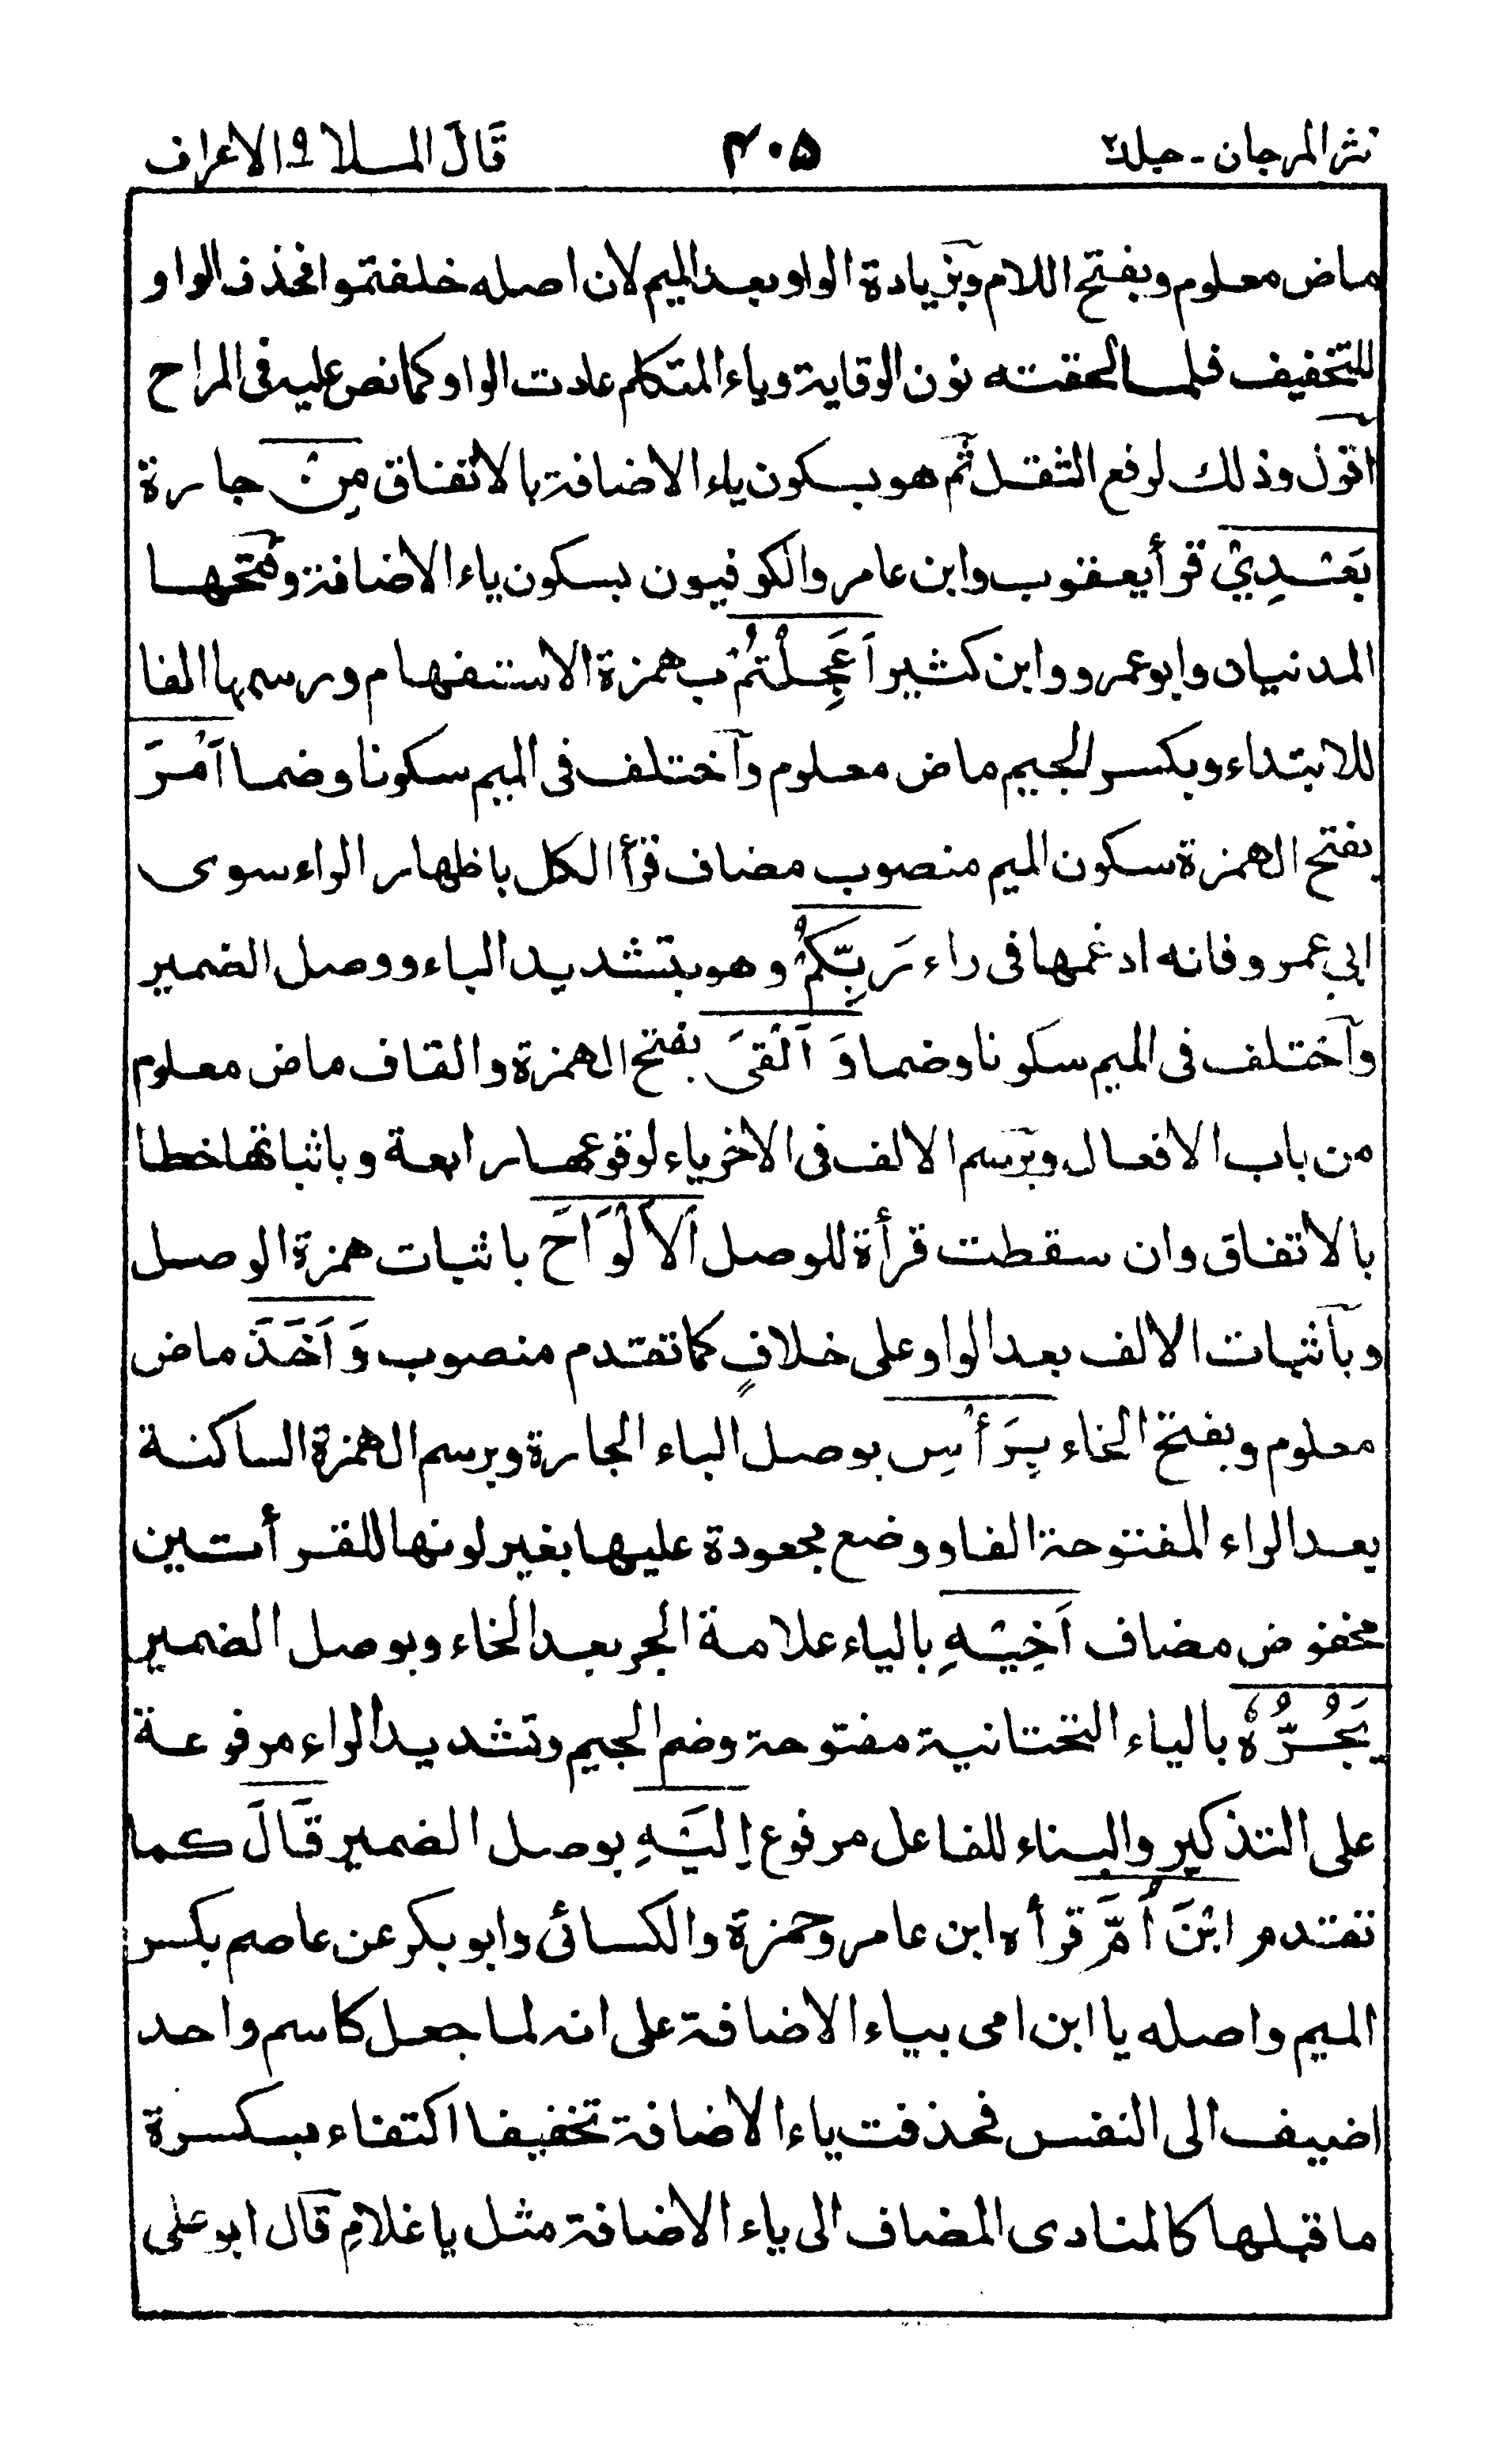 نثر المرجان - جلد٢ ٤٠٥ قَالَ الملا ٩ الاعراف
ماض معلوم وبفتح اللام وبزيادة الواو بعد الميم لان اصله خلفتموا فحذف الواو
للتخفيف فلما لحقته نون الوقاية وياء المتكلم عادت الواو كما نص عليه فى المراح
اقول وذلك لرفع الثقل ثم هو بسكون ياء الاضافة بالاتفاق مِنْ جارة
بَعْدِيْ قرأ يعقوب وابن عامر والكوفيون بسكون ياء الاضافة وفتحها
المدنيان وابو عمرو وابن كثير اَعَجِلْتُمْ بهمزة الاستفهام ورسمها الفا
للابتداء وبكسر الجيم ماض معلوم واختلف فى الميم سكونا وضما اَمْرَ
بفتح الهمزة سكون الميم منصوب مضاف قرأ الكل باظهار الراء سوى
ابي عمرو فانه ادغمها فى راء رَبِّكُمْ وهو بتشديد الباء ووصل الضمير
واختلف فى الميم سكونا وضما وَ اَلْقىَ بفتح الهمزة والقاف ماض معلوم
من باب الافعال وبرسم الالف فى الاخر ياء لوقوعها رابعة وباثباتها خطا
بالاتفاق وان سقطت قرأة للوصل اَلْاَلْوَاحَ باثبات همزة الوصل
وباثبات الالف بعد الواو على خلافٍ كما تقدم منصوب وَ اَخَذَ ماض
معلوم وبفتح الخاء بِرَأْسِ بوصل الباء الجارة وبرسم الهمزة الساكنة
بعد الراء المفتوحة الفا ووضع بجعودة عليها بغير لونها للقرأتين
مخفوض مضاف اَخِيْهِ بالياء علامة الجر بعد الخاء وبوصل الضمير
يَجُرُّهٗ بالياء التحتانية مفتوحة وضم الجيم وتشديد الراء مرفوعة
على التذكير والبناء للفاعل مرفوع اِلَيْهِ بوصل الضمير قَالَ كما
تقتدم ابْنَ اُمَّ قرأه ابن عامر وحمزة والكسائى وابو بكر عن عاصم بكسر
الميم واصله يا ابن امى بياء الاضافة على انه لما جعل كاسم واحد
اضيف الى النفس فحذفت ياء الاضافة تخفيفا اكتفاء بسكسرة
ما قبلها كالمنادى المضاف الى ياء الاضافة مثل يا غلامِ قال ابو على